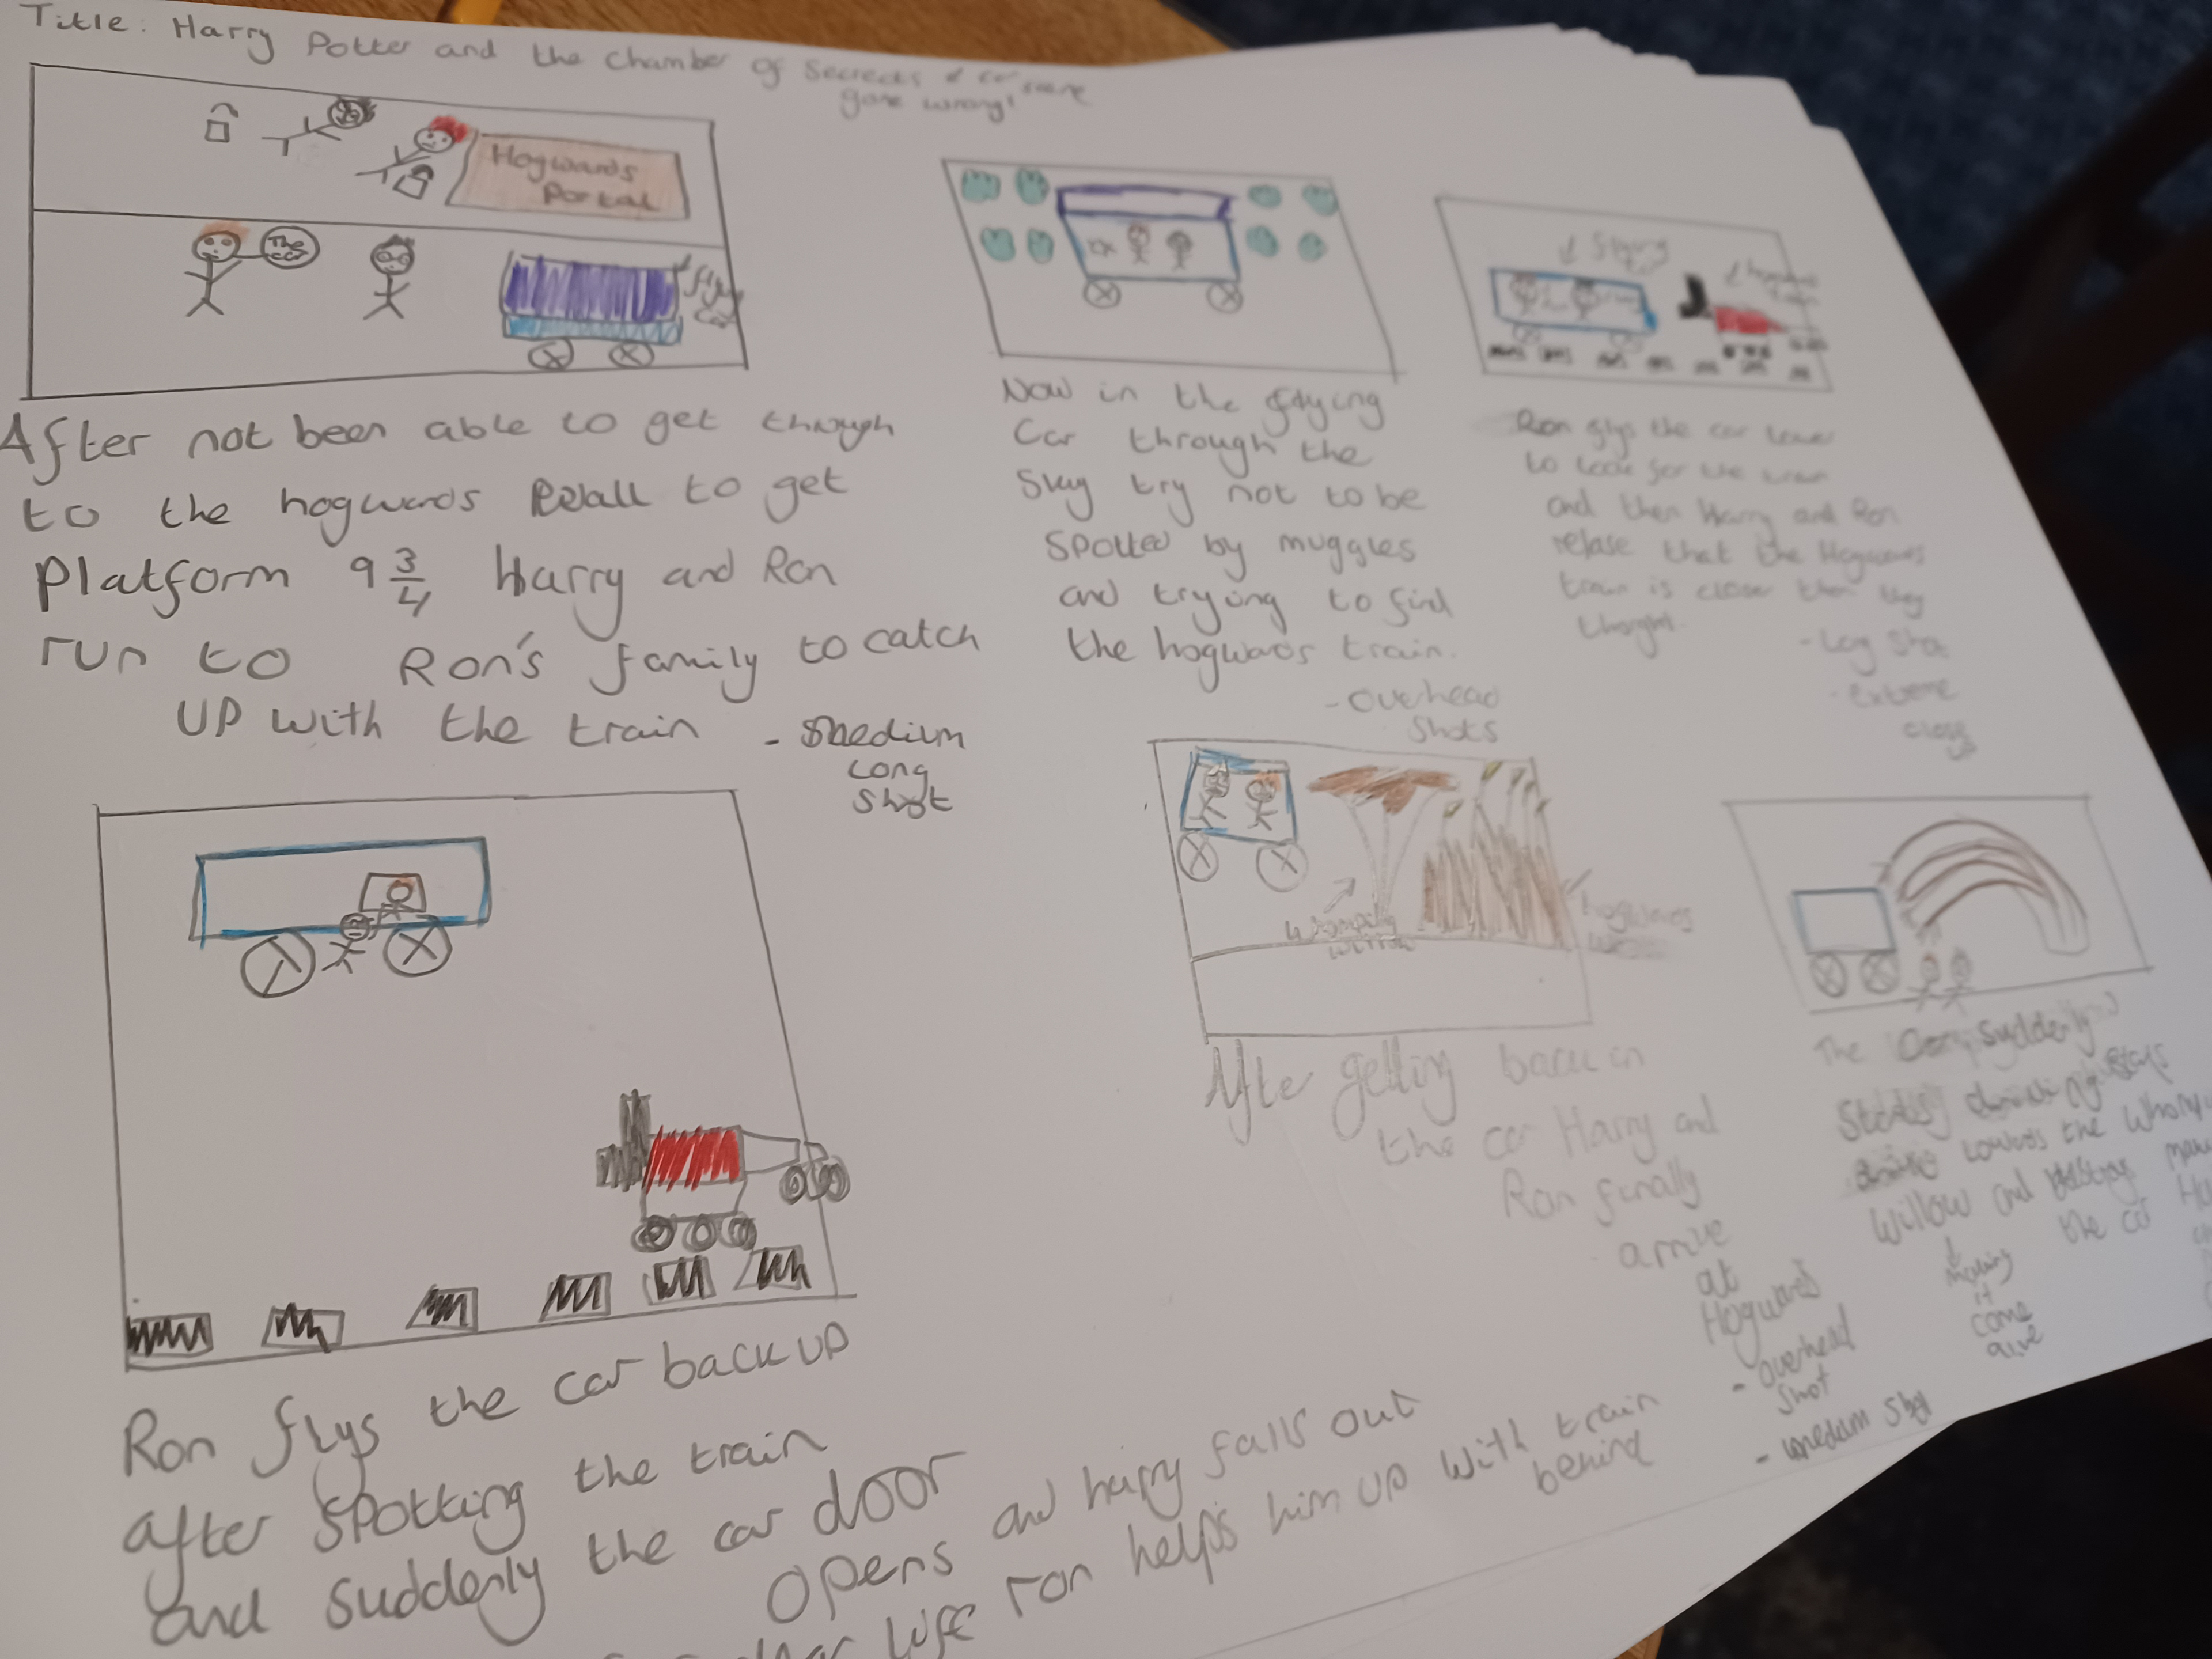 Title: Harry Potter and the chamber of secrects
gone wrong!
Hogwards
Portal
The
car
flying
car
After not been able to get through
to the hogwards wall to get
Platform 9 3/4 Harry and Ron
run to Ron's family to catch
UP with the train - medium
long
shot
Now in the flying
Car through the
Sky try not to be
Spotted by muggles
and trying to find
the hogwards train.
- Overhead
Shots
flying
train
Ron flys the car lower
to look for the train
and then Harry and Ron
relase that the Hogwards
train is closer then they
thought.
- Log Shot
- extreme
close
Ron flys the car back up
after spotting the train
and suddenly the car door
opens and harry falls out
life ron helps him up with train
behind
whomping
willow
hogwards
After getting back in
the car Harry and
Ron finally
arrive
at
Hogwards
- overhead
shot
- medium shot
The Car suddenly
driving
towards the
Willow and the car
making
it
come
alive